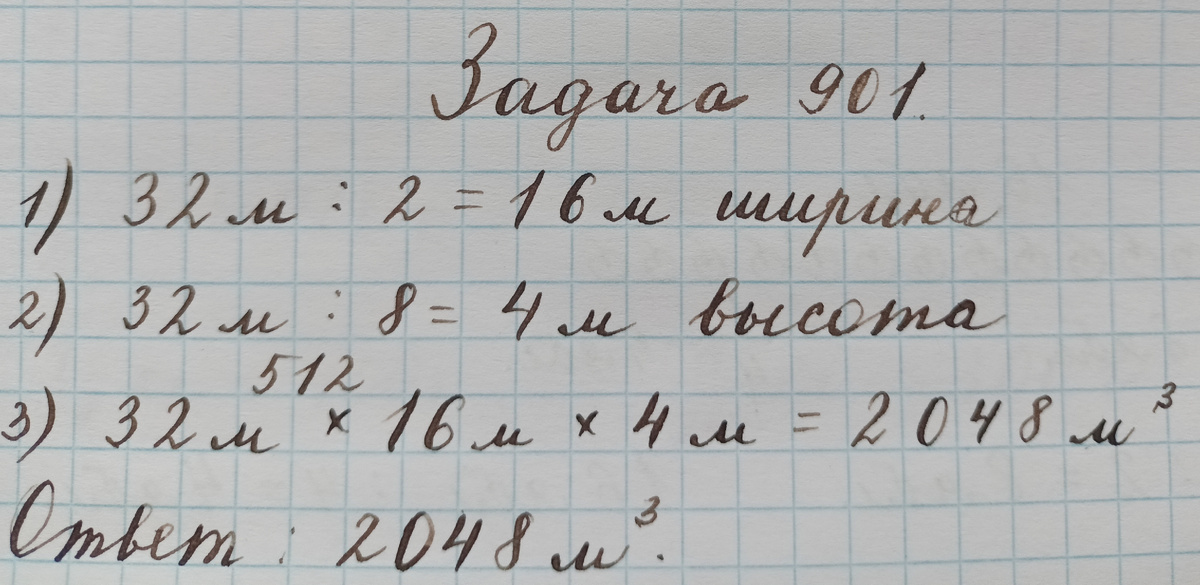 Задача 901.
1) 32 м : 2 = 16 м ширина
2) 32 м : 8 = 4 м высота
512
3) 32 м × 16 м × 4 м = 2048 м³
Ответ : 2048 м³.